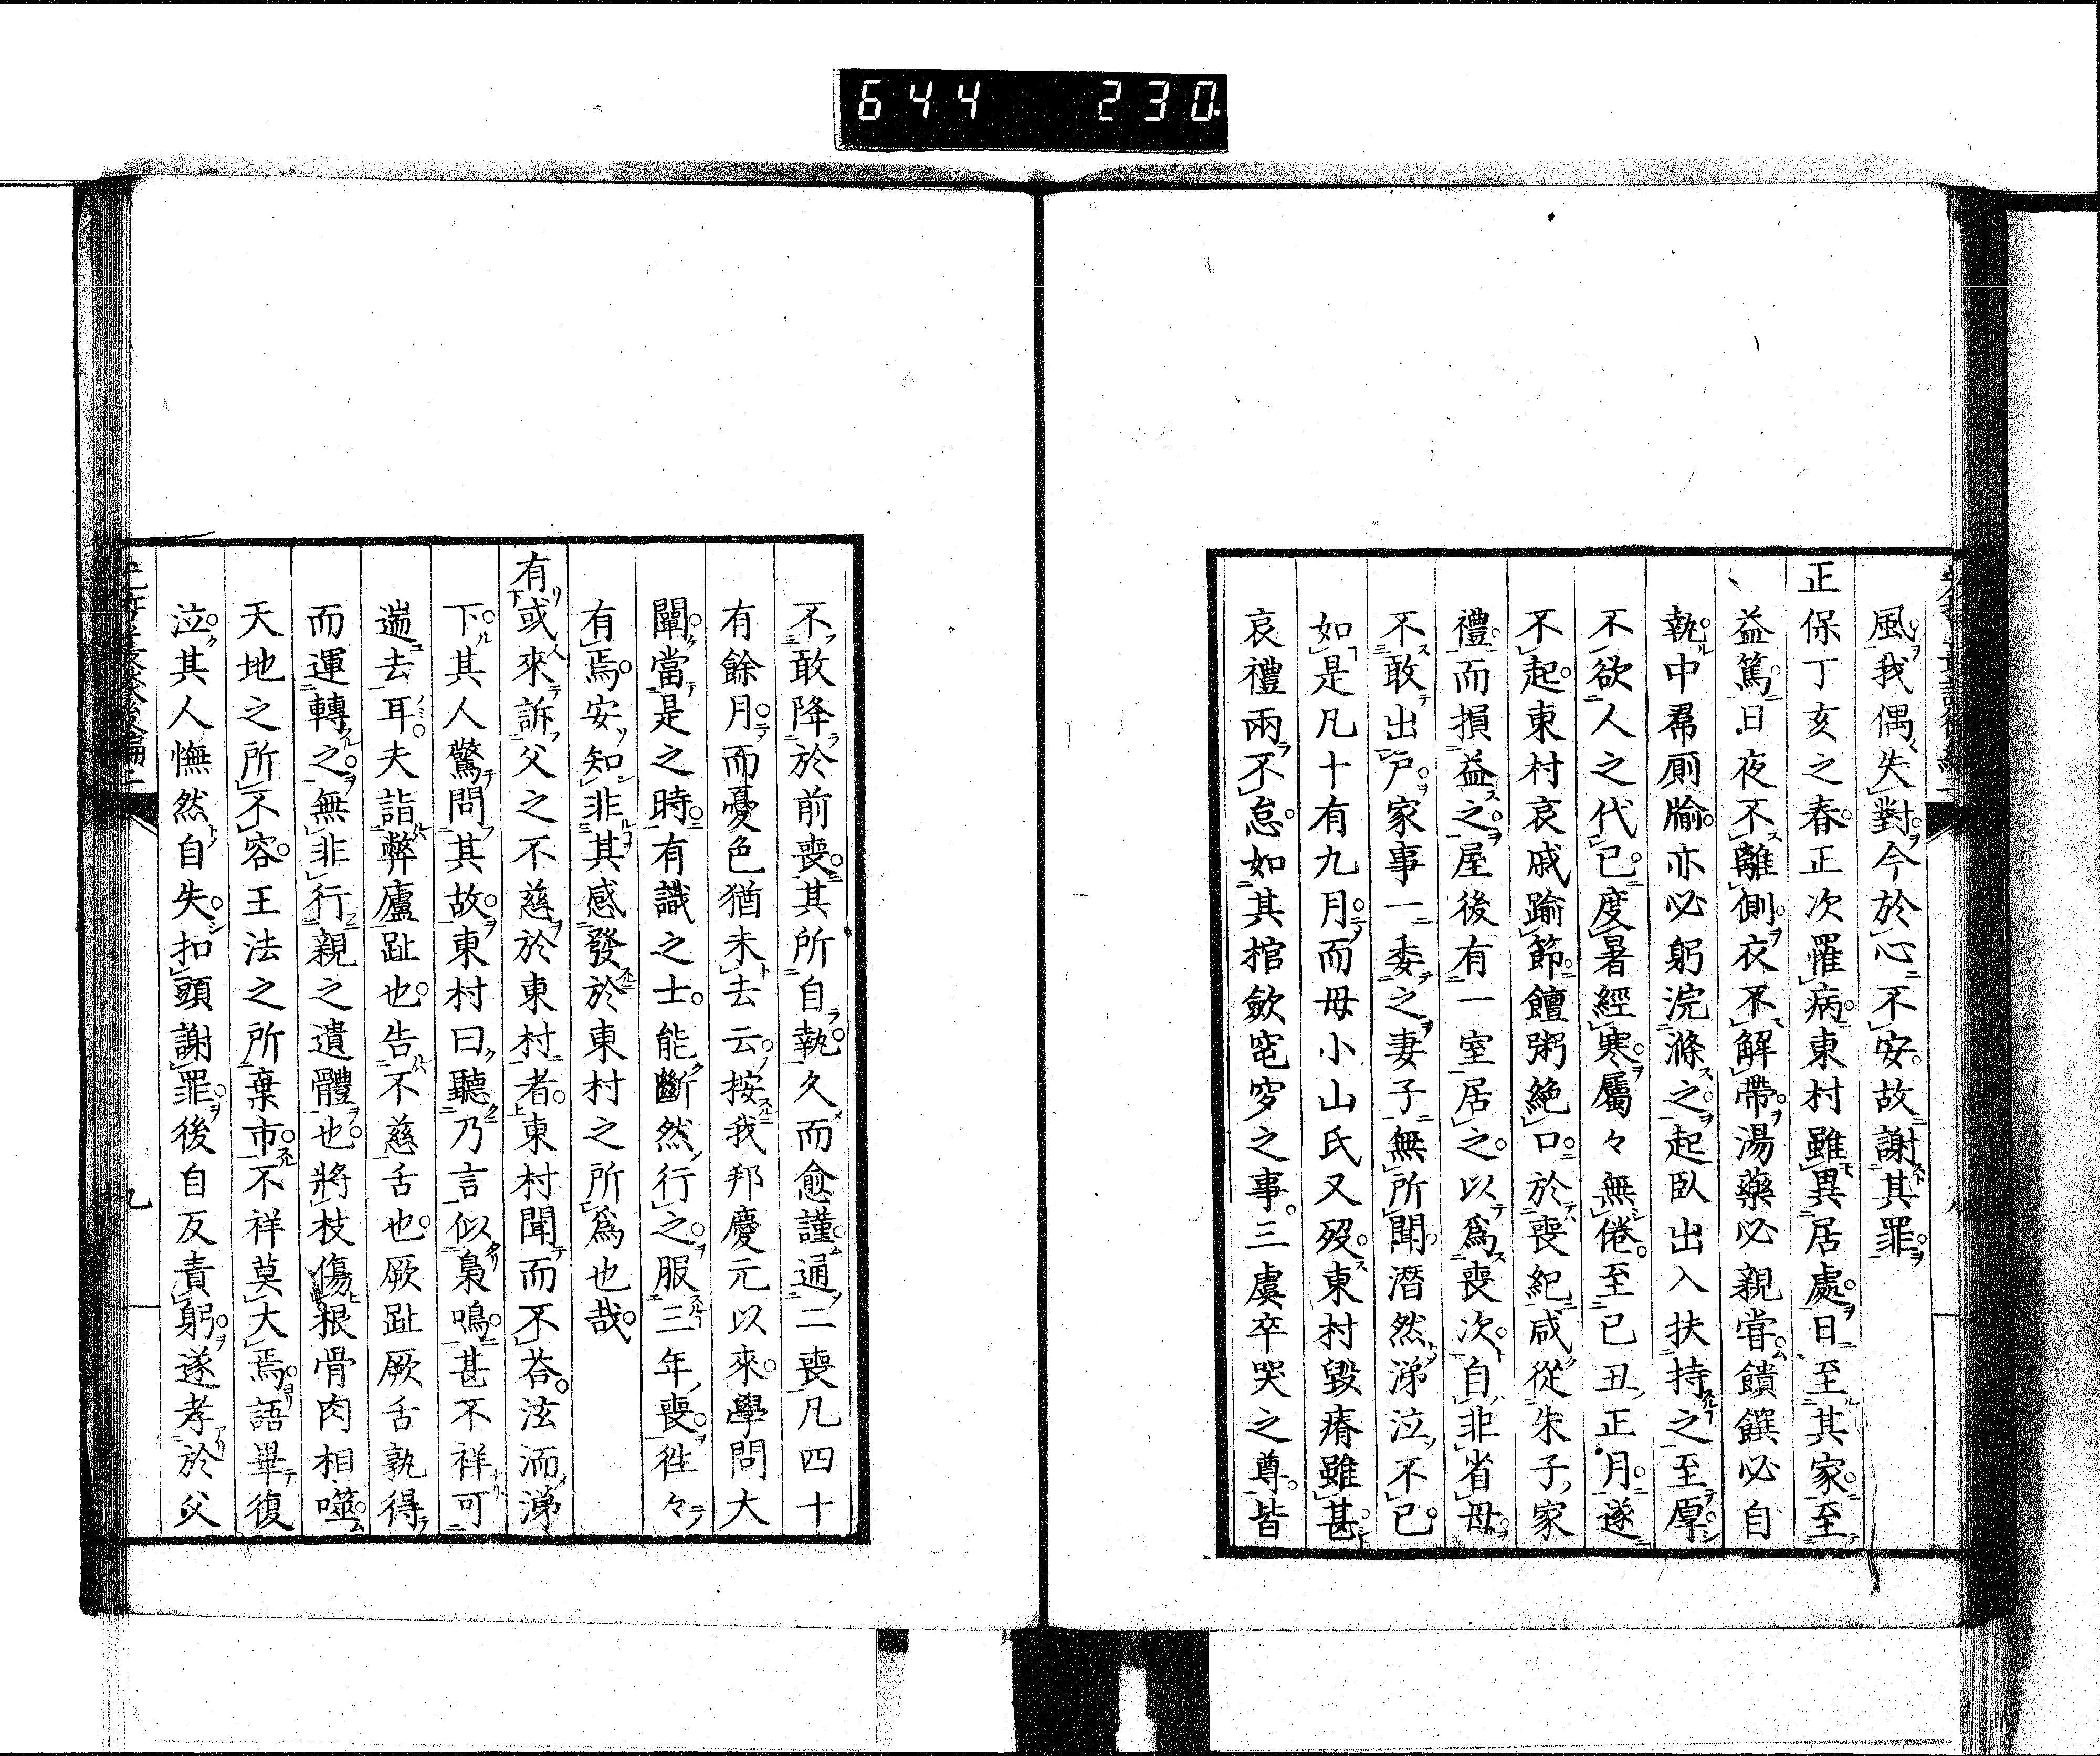 644 230
風我偶失對今於心不安故謝其罪
正保丁亥之春正次罹病東村雖異居處日至其家至
益篤日夜不離側衣不解帶湯藥必親嘗饋饌必自
執中帬廁牏亦必躬浣滌之起臥出入扶持之至厚
不欲人之代已度暑經寒屬々無倦至已丑正月遂
不起東村哀戚踰節饘粥絶口於喪紀咸從朱子家
禮而損益之屋後有一室居之以爲喪次自非省母
不敢出戸家事一委之妻子無所聞潛然涕泣不已
如是凡十有九月而母小山氏又歿東村毀瘠雖甚
哀禮兩不怠如其棺斂窀穸之事三虞卒哭之尊皆
不敢降於前喪其所自執久而愈謹通二喪凡四十
有餘月而憂色猶未去云按我邦慶元以來學問大
闡當是之時有識之士能斷然行之服三年喪徃々
有焉安知非其感發於東村之所爲也哉
有或來訴父之不慈於東村者東村聞而不荅泫洏涕
下其人驚問其故東村曰聽乃言似梟鳴甚不祥可
遄去耳夫詣弊廬趾也告不慈舌也厥趾厥舌孰得
而運轉之無非行親之遺體也將枝傷根骨肉相噬
天地之所不容王法之所棄市不祥莫大焉語畢復
泣其人憮然自失扣頭謝罪後自反責躬遂孝於父
九